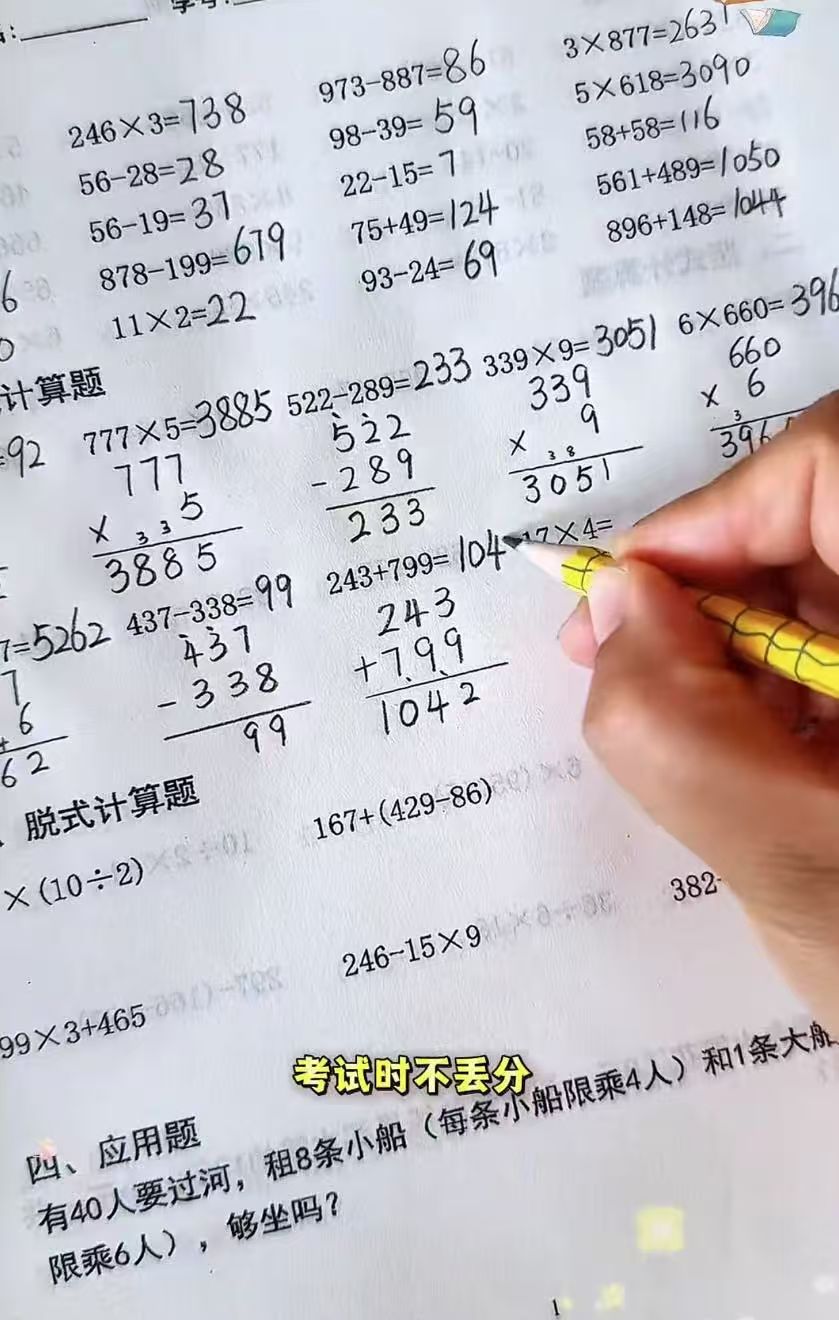 学号:
246×3=738
973-887=86
3×877=2631
56-28=28
98-39=59
5×618=3090
56-19=37
22-15=7
58+58=116
878-199=679
75+49=124
561+489=1050
11×2=22
93-24=69
896+148=1044
6
0
计算题
=92
777×5=3885
522-289=233
339×9=3051
6×660=396
777
× 5
33
3885
522
-289
233
339
× 9
38
3051
660
× 6
3
396
7=5262
437-338=99
243+799=104
17×4=
7
+6
62
437
-338
99
243
+799
1042
脱式计算题
×(10÷2)
167+(429-86)
382-
246-15×9
99×3+465
考试时不丢分
四、应用题
有40人要过河，租8条小船（每条小船限乘4人）和1条大船
限乘6人），够坐吗？
1